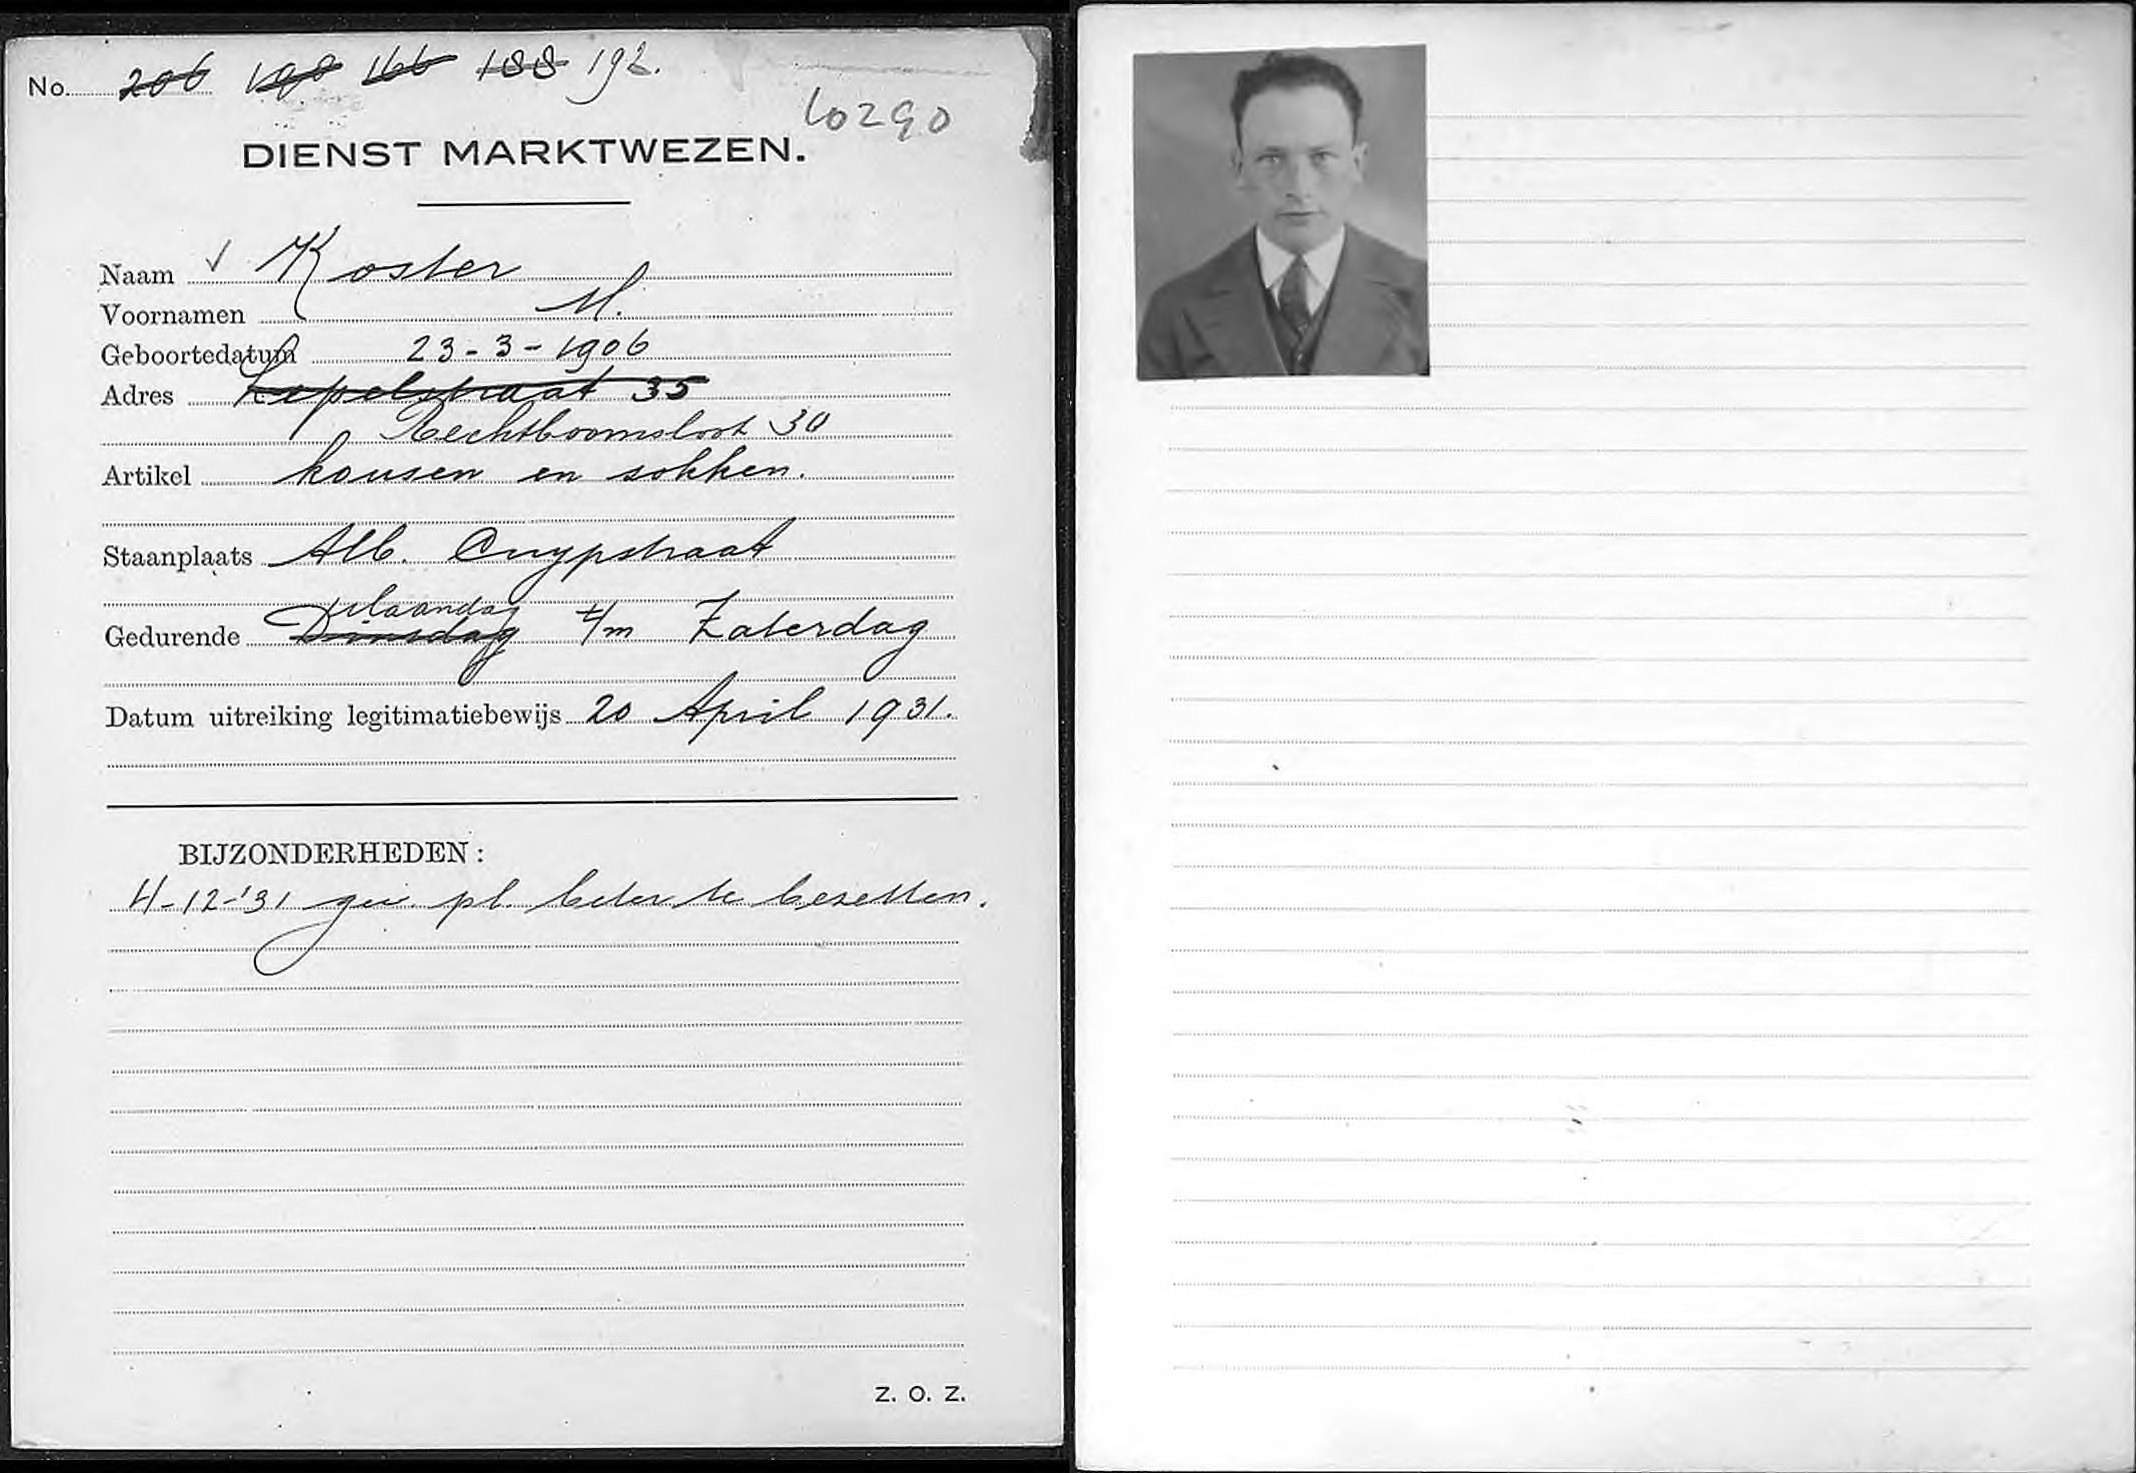 No. 206 198 166 188 192.
10290
DIENST MARKTWEZEN.
Naam √ Koster
Voornamen M.
Geboortedatum 23-3-1906
Adres Lepelstraat 35
Rechtboomsloot 30
Artikel kousen en sokken.
Staanplaats Alb. Cuypstraat
Maandag
Gedurende Dinsdag t/m Zaterdag
Datum uitreiking legitimatiebewijs 20 April 1931.
BIJZONDERHEDEN:
4-12-'31 gew. pl. beter te bezetten.
Z. O. Z.